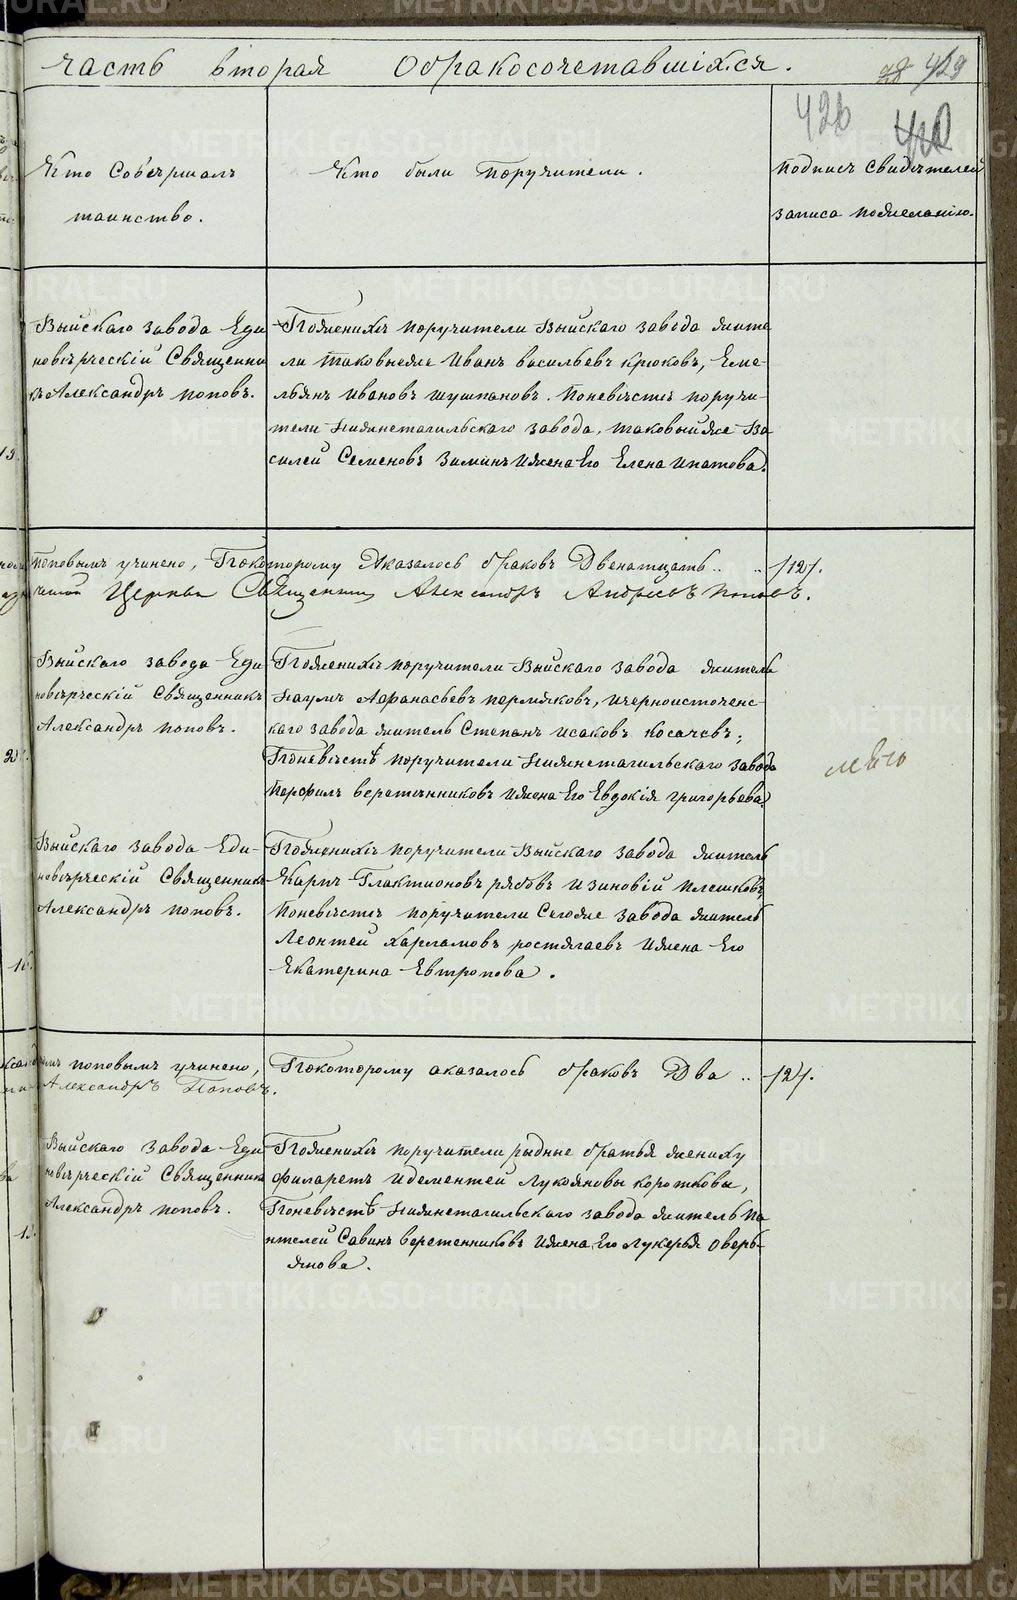 часть вторая О бракосочетавшихся.
28 429
426
Кто Совершалъ
таинство.
Кто были Поручители.
Подпись Свидѣтелей
записа пожеланію.
Выйскаго завода Еди
новѣрческій Священни
къ Александръ поповъ.
Поженихѣ поручители Выйскаго завода жите
ли таковыеже Иванъ васильевъ крюковъ, Еме-
льянъ ивановъ шушпановъ. Поневѣстѣ поручи-
тели нижнетагильскаго завода, таковыйже Ва
силей Семеновъ Зиминъ ижена Его Елена ипатова.
поповымъ учинено, Покоторому Аказалось браковъ Двенатцать .. .. /12/.
Церкви Священникъ Александръ Андреевъ Поповъ.
Выйскаго завода Еди
новѣрческій Священникъ
Александръ поповъ.
Поженихѣ поручители Выйскаго завода житель
Наумъ Афанасьевъ пермяковъ, ичерноисточенс-
каго завода житель Степанъ исаковъ косачевъ;
Поневѣстѣ поручители Нижнетагильскаго завода
Перфилъ веретѣнниковъ ижена Его Евдокія григорьева.
мѣю
Выйскаго завода Еди-
новѣрческій Священникъ
Александръ поповъ.
Поженихѣ поручители Выйскаго завода житель
Карпъ Глактионовъ рябовъ изиновій плешковъ,
Поневѣстѣ поручители Сегоже завода житель
Леонтей харламовъ ростягаевъ ижена Его
Екатерина Евтропова.
16.
поповымъ учинено, Покоторому аказалось браковъ Два .. /2/.
Александръ Поповъ.
Выйскаго завода Еди
новѣрческій Священникъ
Александръ поповъ.
Поженихѣ поручители рыдные братья жениху
филаретъ идементей Лукояновы коротковы,
Поневѣстѣ Нижнетагильскаго завода житель Па
нтелей Савинъ веретенниковъ ижена Его лукерья оверь-
янова.
METRIKI.GASO-URAL.RU